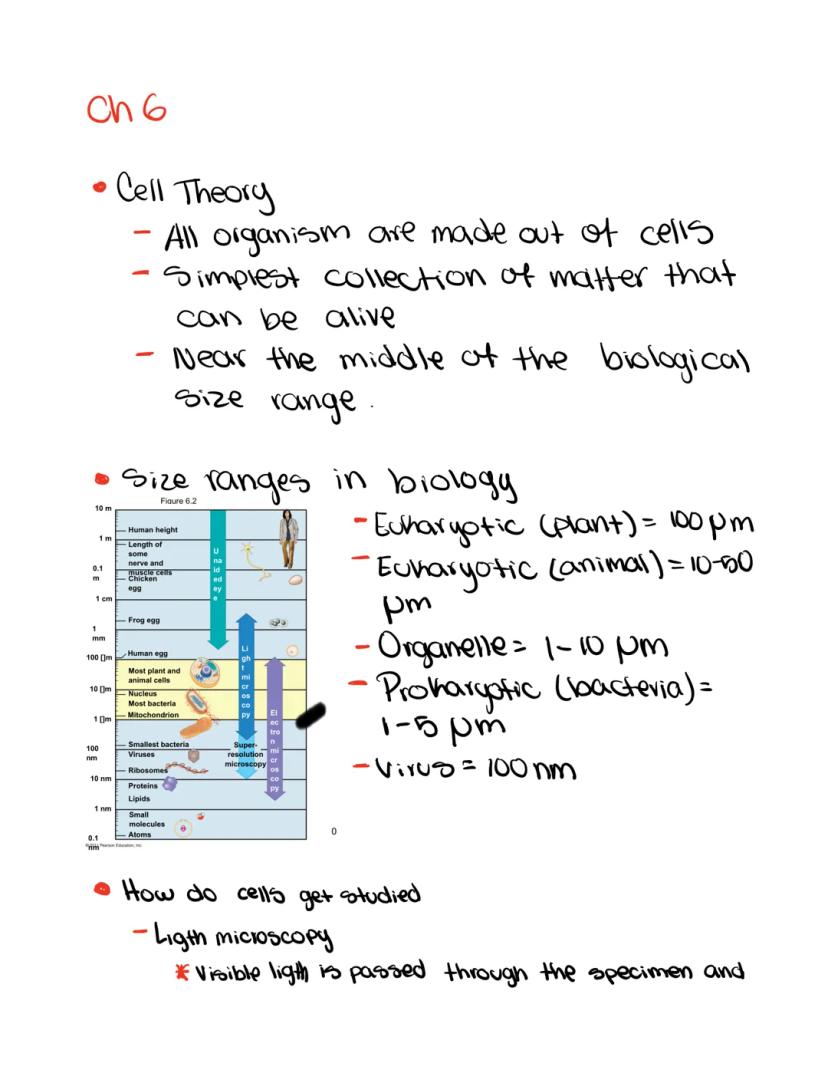 Ch 6
• Cell Theory
- All organism are made out of cells
- Simplest collection of matter that
can be alive
- Near the middle of the biological
size range.
• Size ranges in biology
Figure 6.2
10 m
Human height
1 m
Length of
some
nerve and
muscle cells
0.1
m
Chicken
egg
1 cm
Frog egg
1
mm
Human egg
100 []m
Most plant and
animal cells
10 []m
Nucleus
Most bacteria
Mitochondrion
1 []m
Smallest bacteria
100
nm
Viruses
Ribosomes
10 nm
Proteins
Lipids
1 nm
Small
molecules
Atoms
0.1
nm
U
na
id
ed
ey
e
Li
gh
t
mi
cr
os
co
py
El
ec
tro
n
mi
cr
os
co
py
Super-
resolution
microscopy
0
- Eukaryotic (plant) = 100 μm
- Eukaryotic (animal) = 10-50
μm
- Organelle = 1-10 μm
- Prokaryotic (bacteria) =
1-5 μm
- Virus = 100 nm
• How do cells get studied
- Ligth microscopy
* Visible ligth is passed through the specimen and